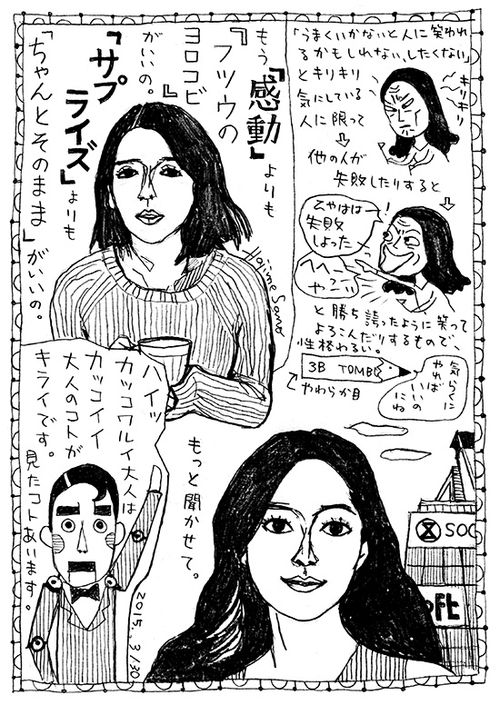 「うまくいかないと人に笑われ
るかもしれない、したくない」
とキリキリ
気にしている
人に限って
⇨
他の人が
失敗したりすると
⇨
キリキリ
キリキリ
!
ムヤはは
失敗
しよった
へへ〜
や〜い
と勝ち誇ったように笑って
よろこんだりするもので、
性格わるい。
3B TOMBO
やわらか目
気らくに
やれば
いいの
にね
もう『感動』よりも
『フツウの
ヨロコビ』
がいいの。
『サプ
ライズ』よりも
「ちゃんとそのまま」がいいの。
Hajime Sano
ハイッ
カッコワルイ大人は
カッコイイ
大人のコトが
キライです。
見たコトあいます。
もっと聞かせて。
SOC
oft
2015. 3/30